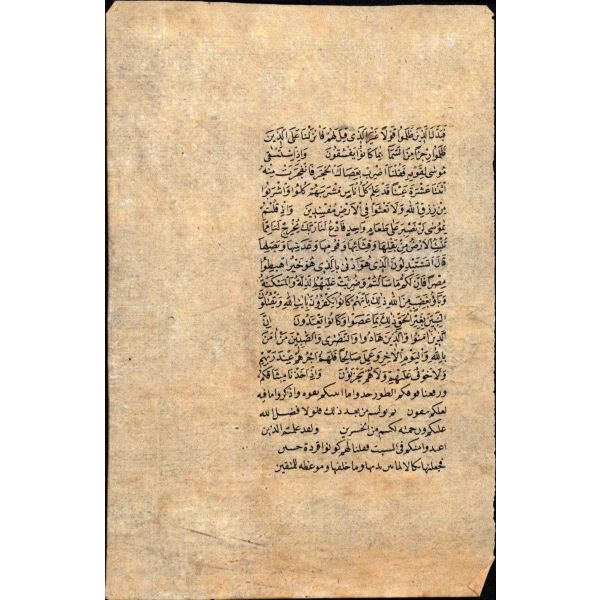 فبدل الذين ظلموا قولا غير الذى قيل لهم فانزلنا على الذين
ظلموا رجزا من السما بما كانوا يفسقون واذ استسقى
موسى لقومه فقلنا اضرب بعصاك الحجر فانفجرت منه
اثنتا عشرة عينا قد علم كل اناس مشربهم كلوا واشربوا
من رزق الله ولا تعثوا فى الارض مفسدين واذ قلتم
يموسى لن نصبر على طعام واحد فادع لنا ربك يخرج لنا مما
تنبت الارض من بقلها وقثائها وفومها وعدسها وبصلها
قال اتستبدلون الذى هو ادنى بالذى هو خير اهبطوا
مصرا فان لكم ما سالتم وضربت عليهم الذلة والمسكنة
وباؤ بغضب من الله ذلك بانهم كانوا يكفرون بايت الله ويقتلون
النبيين بغير الحق ذلك بما عصوا وكانوا يعتدون ان
الذين امنوا والذين هادوا والنصرى والصبين من امن
بالله واليوم الاخر وعمل صالحا فلهم اجرهم عند ربهم
ولا خوف عليهم ولا هم يحزنون واذ اخذنا ميثاقكم
ورفعنا فوقكم الطور خذوا ما اتينكم بقوة واذكروا ما فيه
لعلكم تتقون ثم توليتم من بعد ذلك فلولا فضل الله
عليكم ورحمته لكنتم من الخسرين ولقد علمتم الذين
اعتدوا منكم فى السبت فقلنا لهم كونوا قردة خسين
فجعلنها نكالا لما بين يديها وما خلفها وموعظة للمتقين